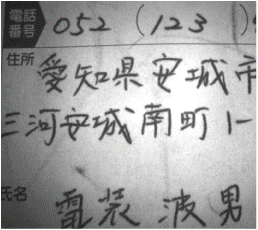 電話番号 052 (123)
住所 愛知県安城市
三河安城南町1-
氏名 電装波男